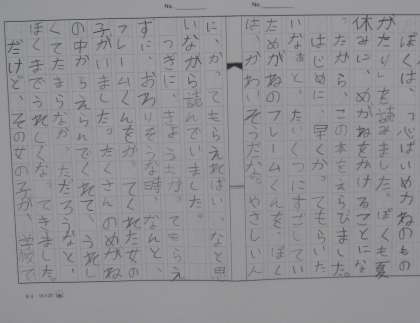 No.
No.
ぼくは、「心ぱいめがねのもの
がたり」を読みました。ぼくも夏
休みに、めがねをかけることにな
ったから、この本をえらびました。
はじめに、早くかってもらいた
いなあと、たいくつにすごしてい
ためがねのフレームくんを、ぼく
は、かわいそうだな。やさしい人
に、かってもらえればいいなと思
いながら読んでいました。
つぎに、きょうも、かってもらえ
ずに、おわりそうな時、なんと、
フレームくんをかってくれた女の
子がいました。たくさんのめがね
の中からえらんでくれて、うれし
くてたまらなかっただろうなと、
ぼくまでうれしくなってきました。
だけど、その女の子が、学校で